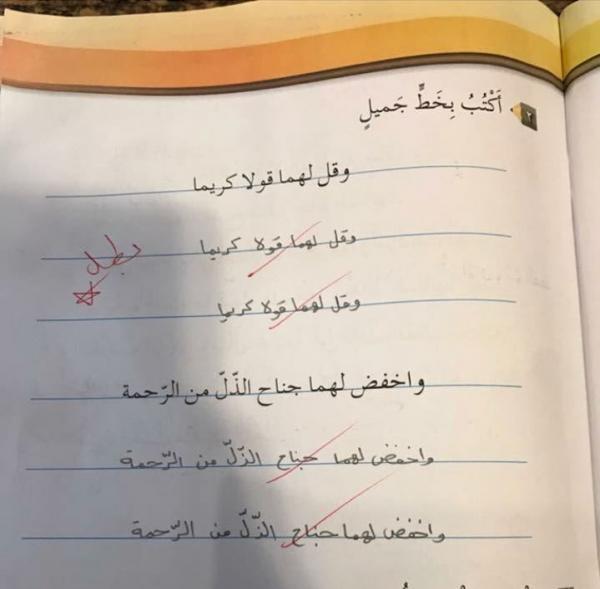 ٢. أَكْتُبُ بِخَطٍّ جَميلٍ
وقل لهما قولا كريما
وقل لهما قولا كريما
بطل
وقل لهما قولا كريما
واخفض لهما جناح الذّلّ من الرّحمة
واخفض لهما جناح الذّلّ من الرّحمة
واخفض لهما جناح الذّلّ من الرّحمة